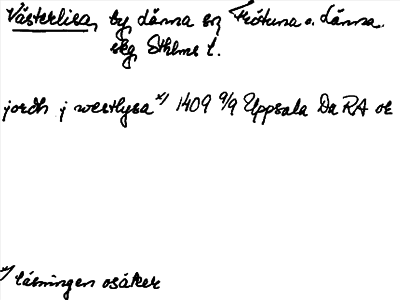 Västerlisa, by Länna sn Frötuna o. Länna.
skg Sthlms l.
jordh j westlysa x) 1409 9/9 Uppsala Da RA or
x) läsningen osäker